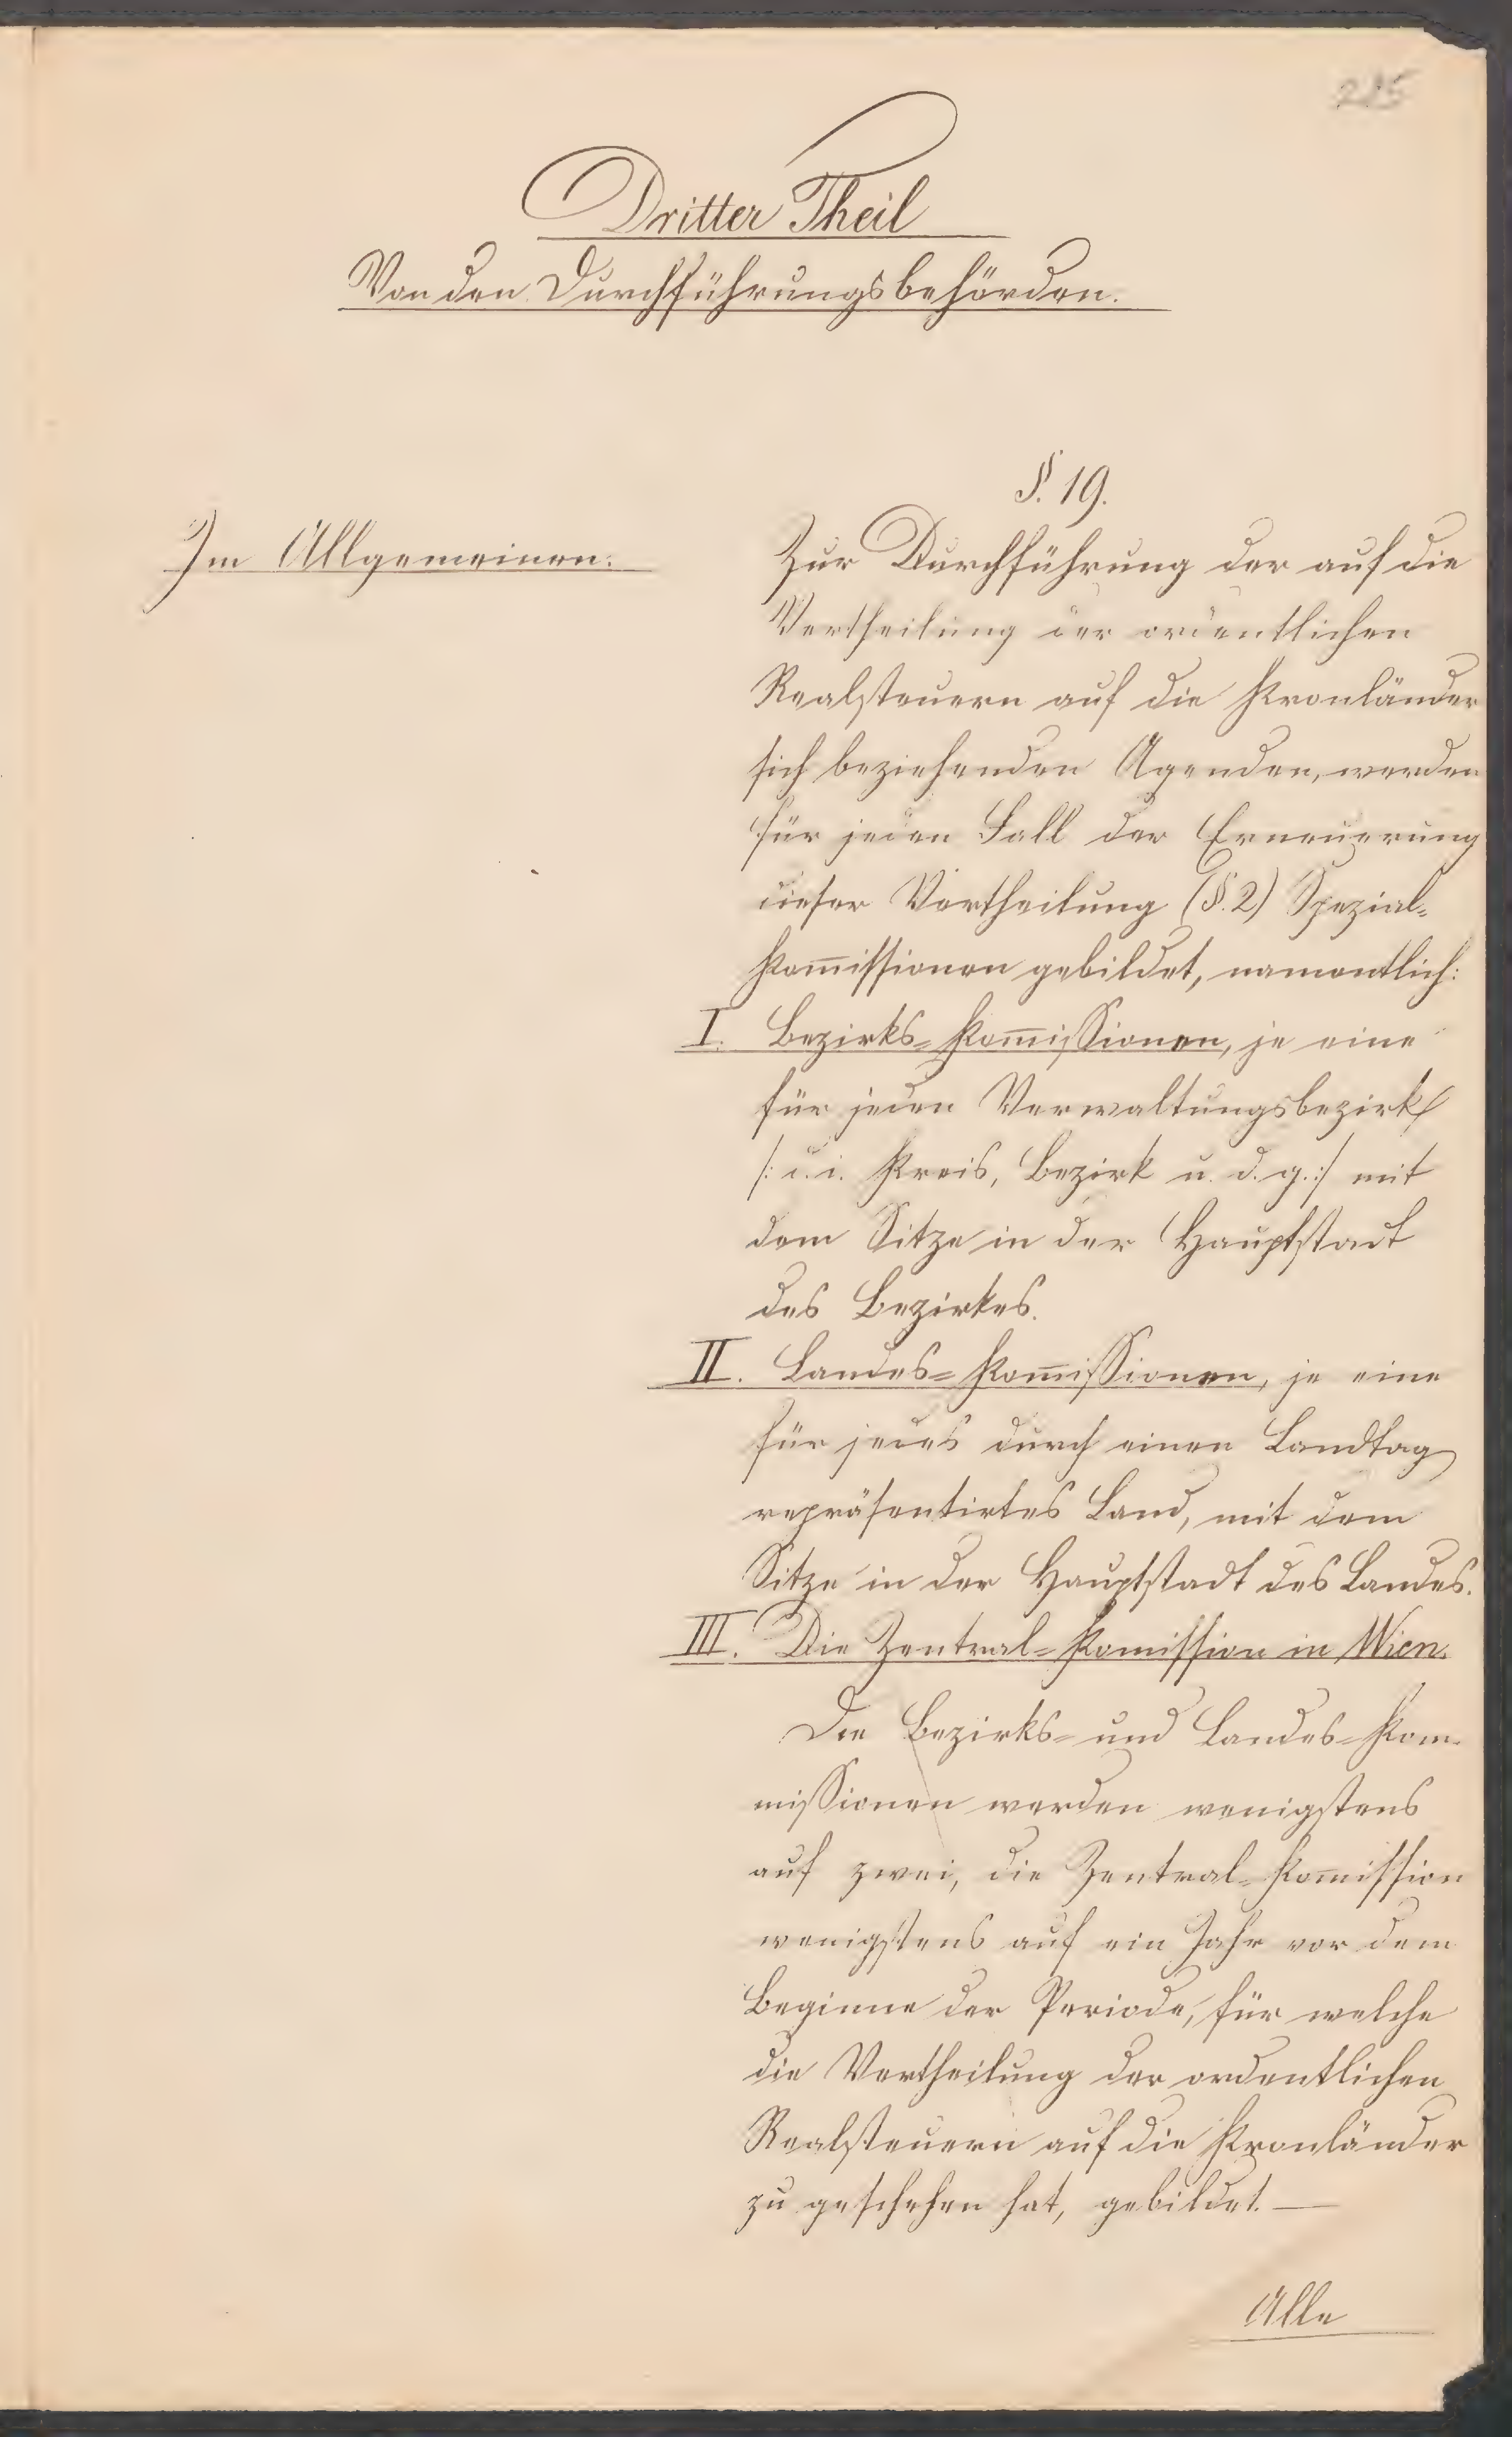 215
Dritter Theil
Von den Durchführungsbehörden.
§. 19.
Im Allgemeinen.
Zur Durchführung der auf die
Vertheilung der ordentlichen
Realsteuern auf die Kronländer
sich beziehenden Agenden, werden
für jeden Fall der Erneuerung
dieser Vertheilung (§. 2) Spezial-
Kom̅issionen gebildet, namentlich:
I. Bezirks-Kom̅issionen, je eine
für jeden Verwaltungsbezirk
/: d. i. Kreis, Bezirk u. d. g. :/ mit
dem Sitze in der Hauptstadt
des Bezirkes.
II. Landes-Kom̅issionen, je eine
für jedes durch einen Landtag
repräsentirtes Land, mit dem
Sitze in der Hauptstadt des Landes.
III. Die Zentral-Kom̅ission in Wien.
Die Bezirks- und Landes-Kom-
missionen werden wenigstens
auf zwei, die Zentral-Kom̅ission
wenigstens auf ein Jahr vor dem
Beginne der Periode, für welche
die Vertheilung der ordentlichen
Realsteuern auf die Kronländer
zu geschehen hat, gebildet. —
Alle